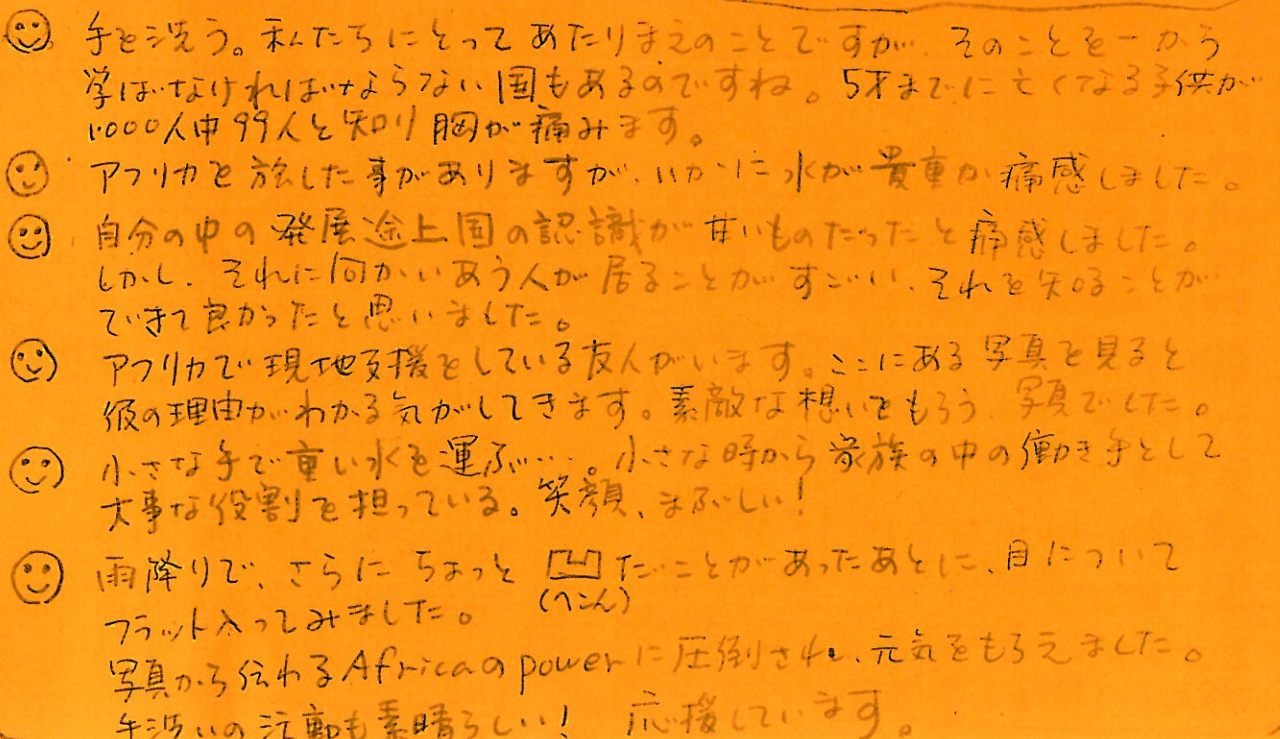 手を洗う。私たちにとってあたりまえのことですが、そのことを一から
学ばなければならない国もあるのですね。5才までに亡くなる子供が
1000人中99人と知り胸が痛みます。
アフリカを旅した事がありますが、いかに水が貴重か痛感しました。
自分の中の発展途上国の認識が甘いものだったと痛感しました。
しかし、それに向かいあう人が居ることがすごい、それを知ることが
できて良かったと思いました。
アフリカで現地支援をしている友人がいます。ここにある写真を見ると
彼の理由がわかる気がしてきます。素敵な想いをもらう写真でした。
小さな手で重い水を運ぶ…。小さな時から家族の中の働き手として
大事な役割を担っている。笑顔、まぶしい!
雨降りで、さらにちょっと凹だことがあったあとに、目について
(へこん)
フラット入ってみました。
写真から伝わるAfricaのpowerに圧倒され、元気をもらえました。
手洗いの活動も素晴らしい! 応援しています。